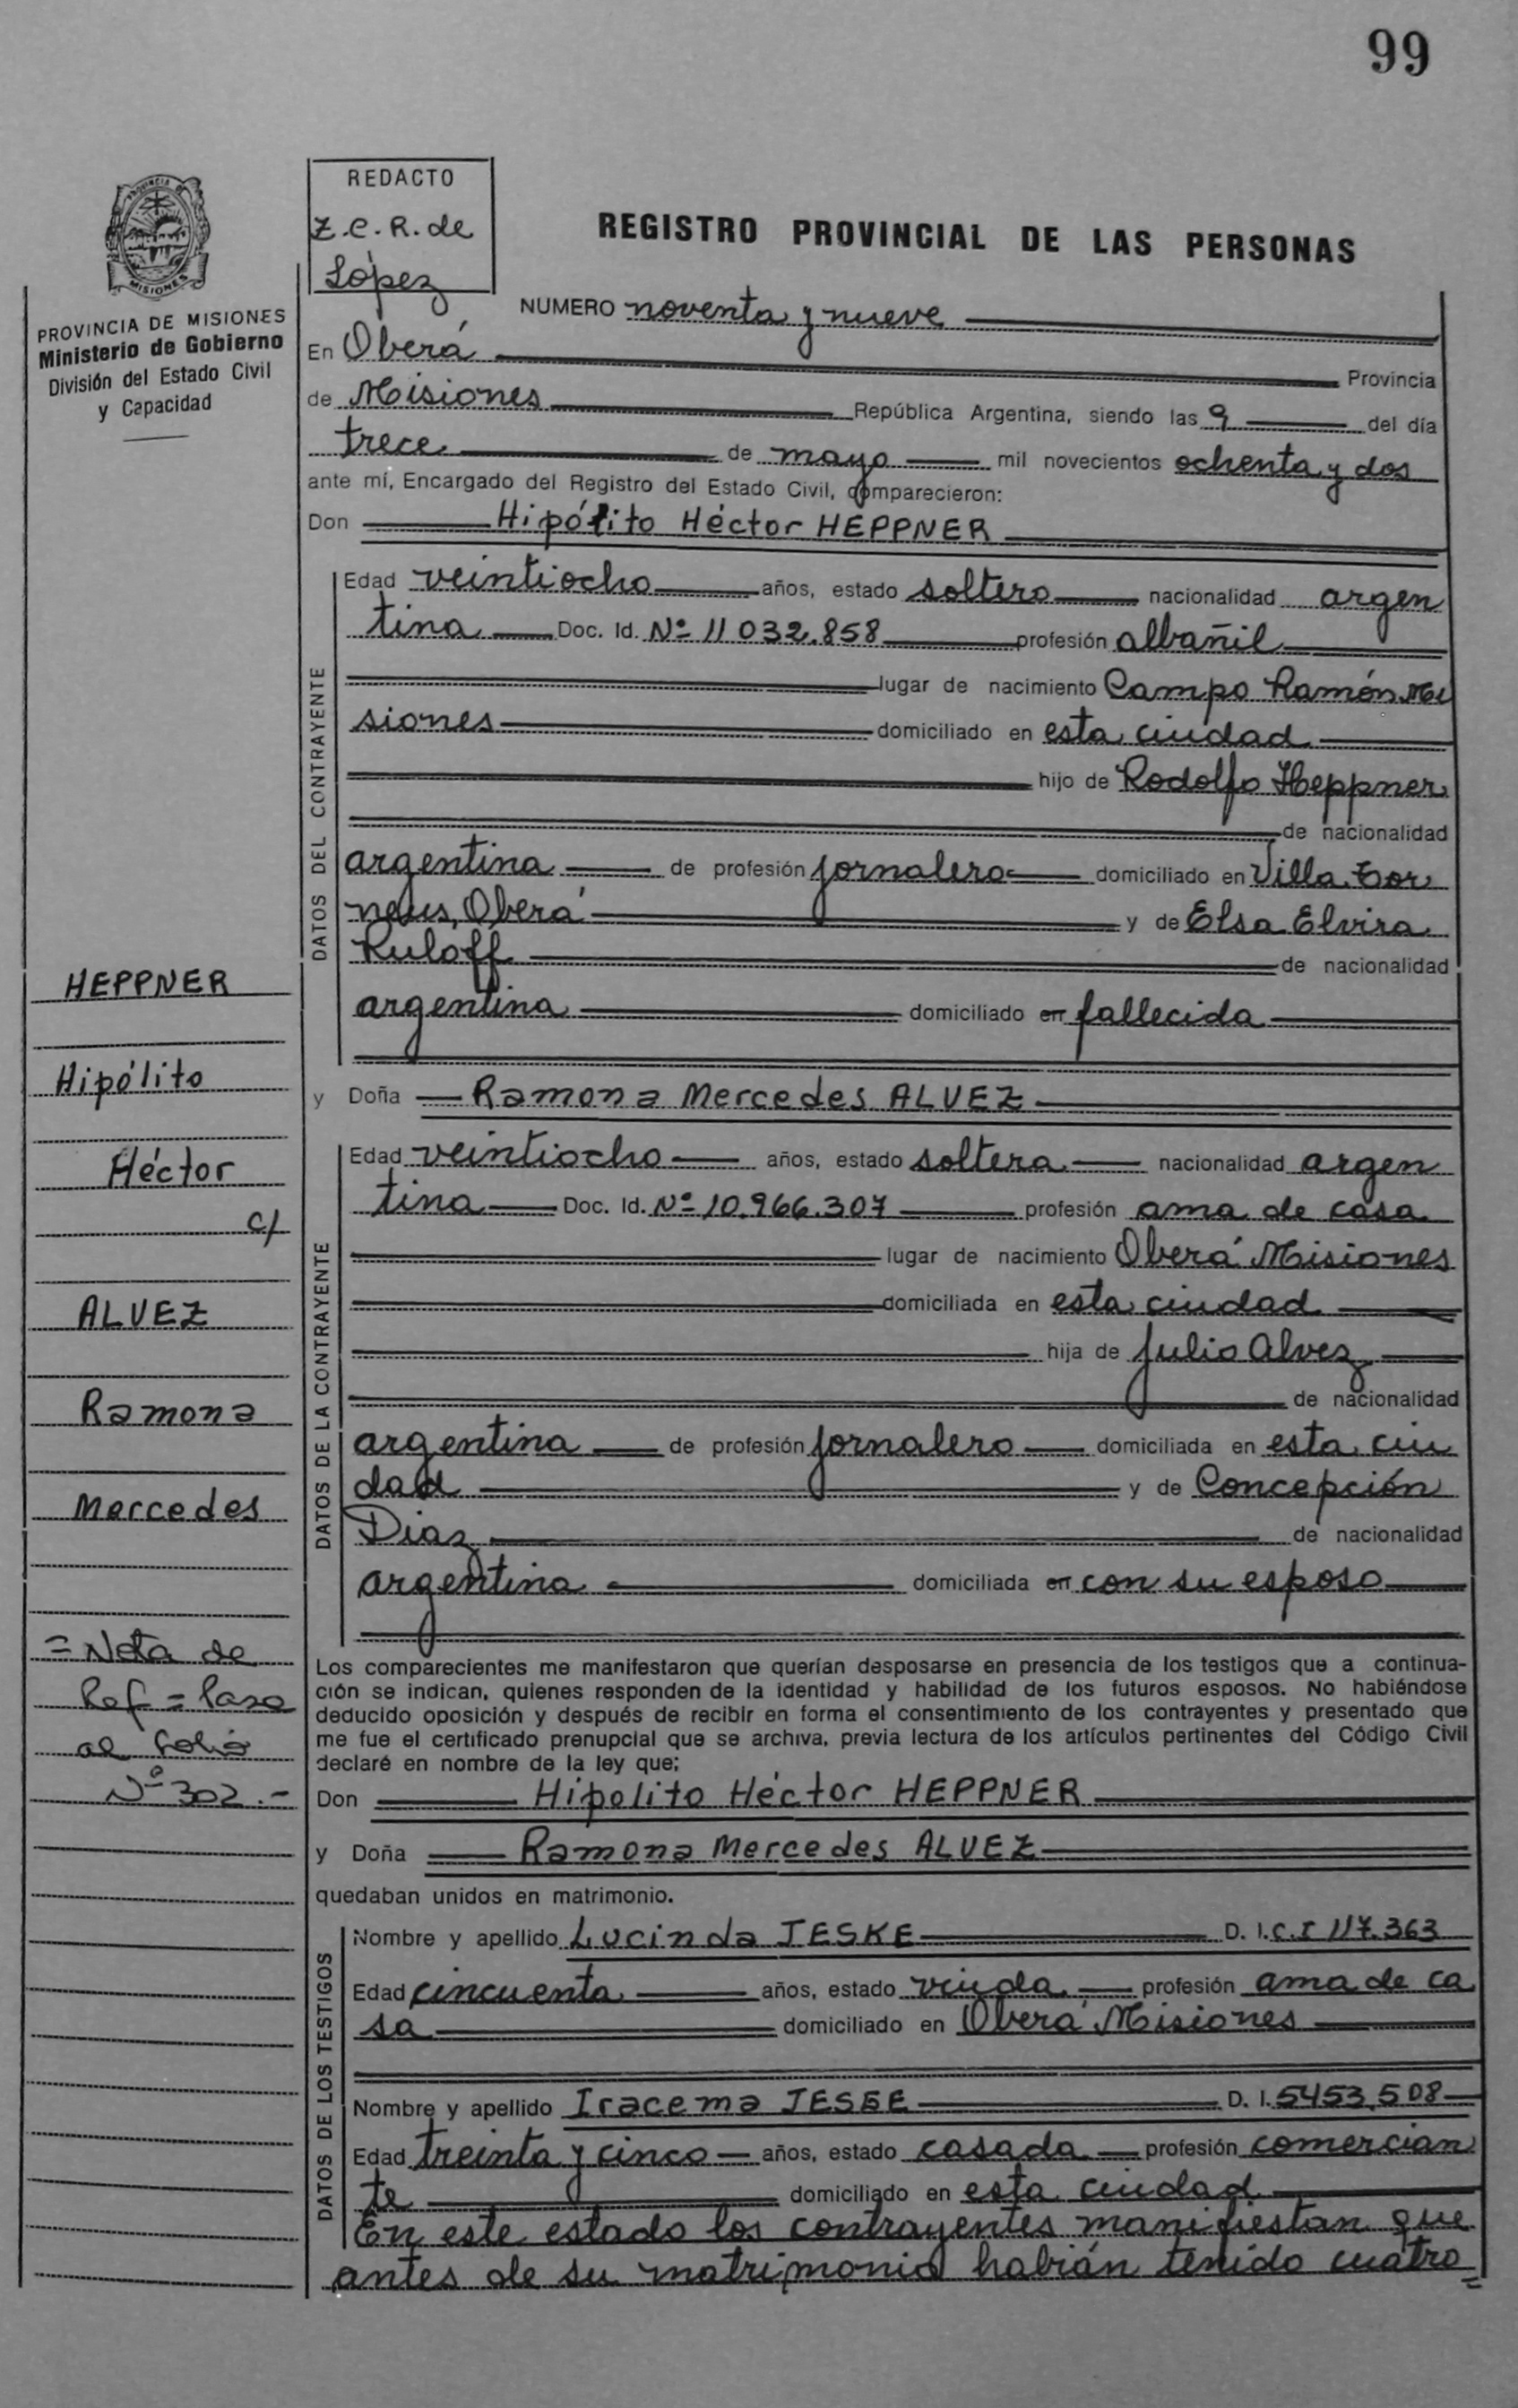 99
REDACTO
Z.C.R. de
López
PROVINCIA DE
MISIONES
PROVINCIA DE MISIONES
Ministerio de Gobierno
División del Estado Civil
y Capacidad
REGISTRO PROVINCIAL DE LAS PERSONAS
NUMERO noventa y nueve
En Oberá Provincia
de Misiones República Argentina, siendo las 9 del día
trece de mayo mil novecientos ochenta y dos
ante mí, Encargado del Registro del Estado Civil, comparecieron:
Don Hipólito Héctor HEPPNER
DATOS DEL CONTRAYENTE
Edad veintiocho años, estado soltero nacionalidad argen
tina Doc. Id. Nº 11 032.858 profesión albañil
lugar de nacimiento Campo Ramón Mi
siones domiciliado en esta ciudad
hijo de Rodolfo Heppner
de nacionalidad
argentina de profesión jornalero domiciliado en Villa
Oberá y de Elsa Elvira
Ruloff de nacionalidad
argentina domiciliado en fallecida
y Doña Ramona Mercedes ALVEZ
DATOS DE LA CONTRAYENTE
Edad veintiocho años, estado soltera nacionalidad argen
tina Doc. Id. Nº 10.966.307 profesión ama de casa
lugar de nacimiento Oberá Misiones
domiciliada en esta ciudad
hija de Julio Alvez
de nacionalidad
argentina de profesión jornalero domiciliada en esta ciu
dad y de Concepción
Diaz de nacionalidad
argentina domiciliada en con su esposo
HEPPNER
Hipólito
Héctor
c/
ALVEZ
Ramona
Mercedes
= Nota de
Ref = Pasa
al folio
Nº 302.-
Los comparecientes me manifestaron que querían desposarse en presencia de los testigos que a continua-
ción se indican, quienes responden de la identidad y habilidad de los futuros esposos. No habiéndose
deducido oposición y después de recibir en forma el consentimiento de los contrayentes y presentado que
me fue el certificado prenupcial que se archiva, previa lectura de los artículos pertinentes del Código Civil
declaré en nombre de la ley que;
Don Hipolito Héctor HEPPNER
y Doña Ramona Mercedes ALVEZ
quedaban unidos en matrimonio.
DATOS DE LOS TESTIGOS
Nombre y apellido Lucinda JESKE D. I. C.I 117.363
Edad cincuenta años, estado viuda profesión ama de ca
sa domiciliado en Oberá Misiones
Nombre y apellido Iracema D. I. 5453.508
Edad treinta y cinco años, estado casada profesión comercian
te domiciliado en esta ciudad
En este estado los contrayentes manifiestan que
antes de su matrimonio habían tenido cuatro =